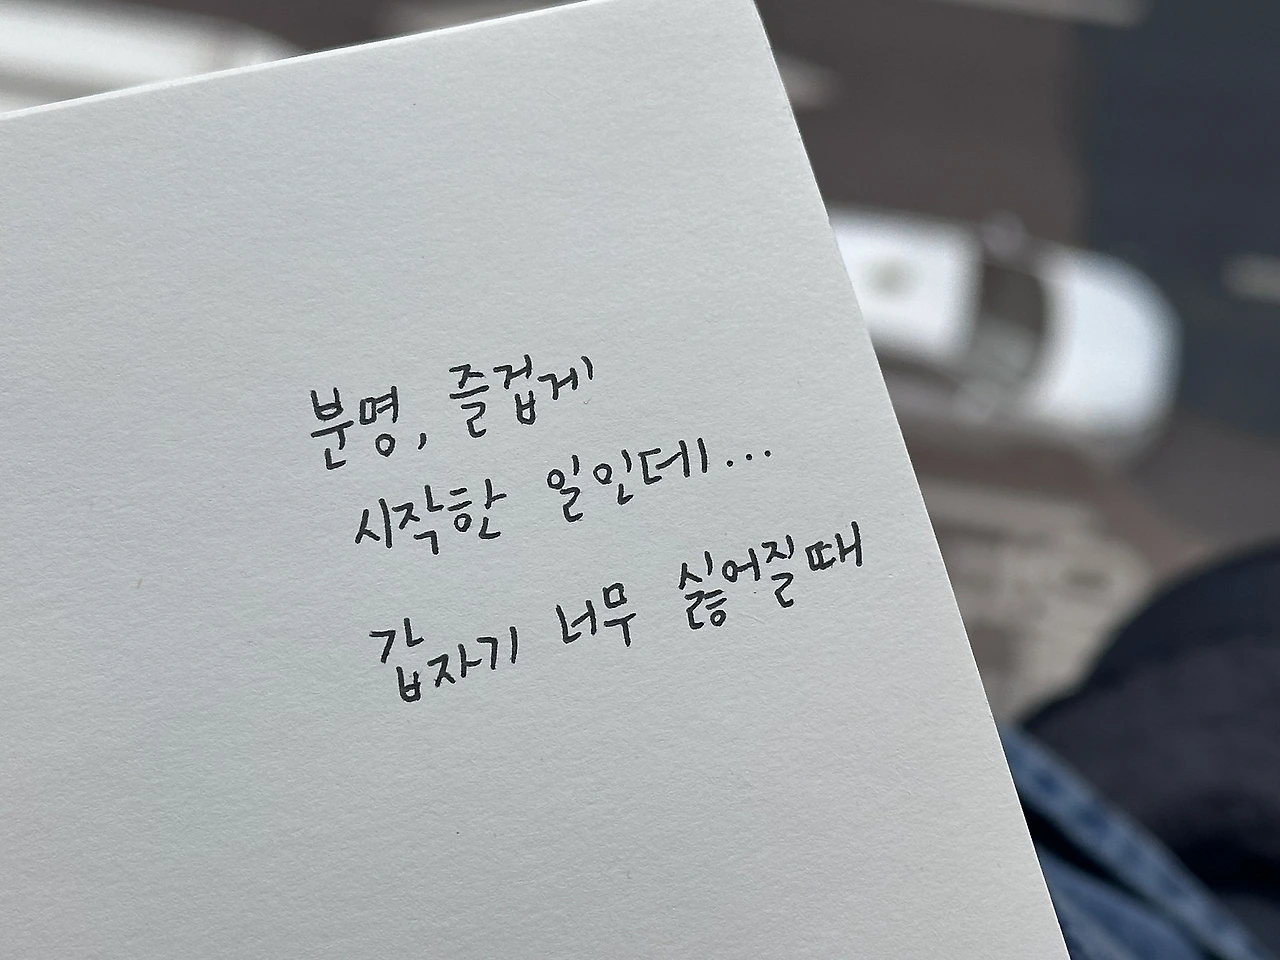 분명, 즐겁게
시작한 일인데...
갑자기 너무 싫어질때